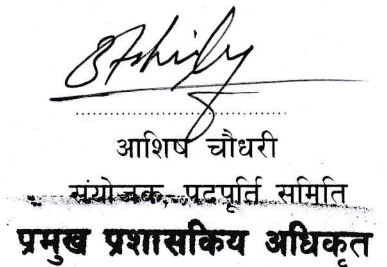 आशिष चौधरी
संयोजक, पदपूर्ति समिति
प्रमुख प्रशासकिय अधिकृत